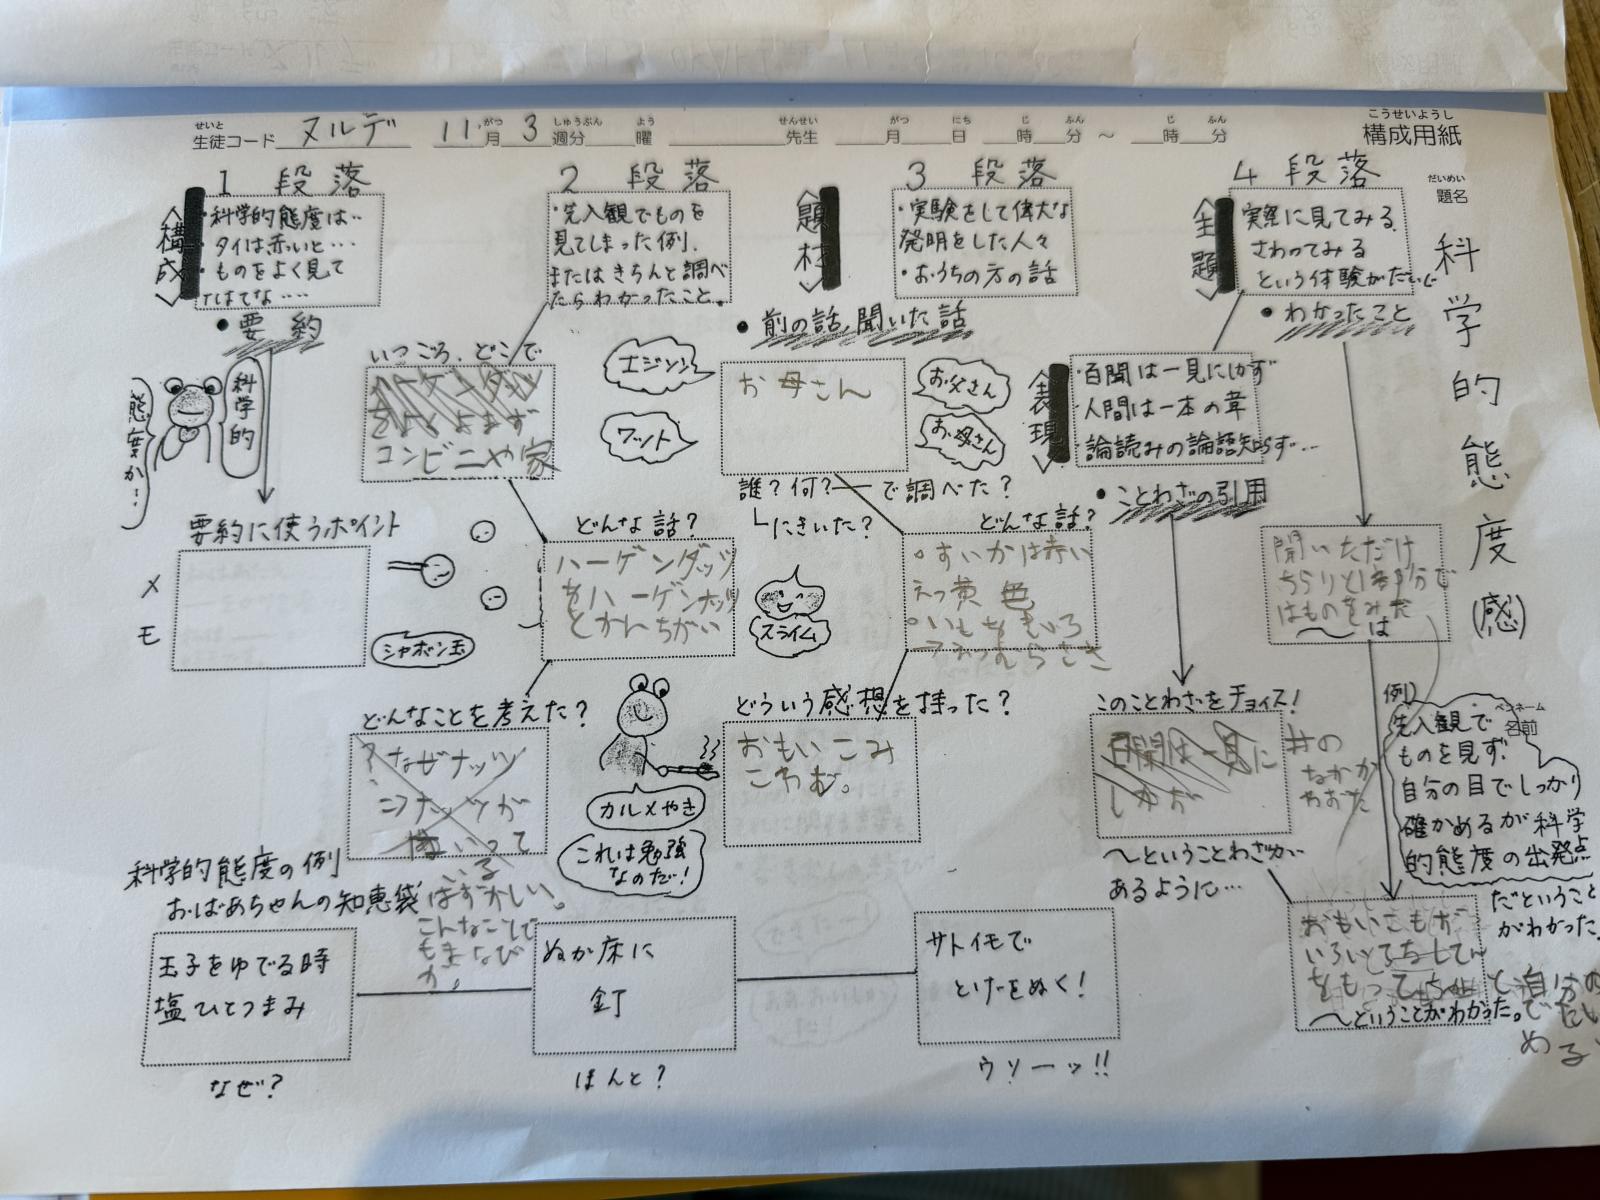 せいと がつ しゅうぶん よう せんせい がつ にち じ ふん じ ふん こうせいようし
生徒コード ヌルデ 11月 3週分 曜 先生 月 日 時 分 ～ 時 分 構成用紙
だいめい
題名
科学的態度(感)
ペンネーム
名前
1 段落
〈構成〉
・科学的態度は…
・タイは赤いと…
・ものをよく見て
たはてな……
・要約
科学的
態度か…
要約に使うポイント
メモ
シャボン玉
2 段落
・先入観でものを
見てしまった例.
またはきちんと調べ
たらわかったこと。
いつごろ、どこで
コンビニや家
エジソン
ワット
どんな話?
ハーゲンダッツ
をハーゲンナッツ
とかんちがい
スライム
どんなことを考えた?
?なぜナッツ
ニナッツが
はいって
いる
はずかしい。
こんなことで
もまなび
か。
カルメやき
これは勉強
なのだ!
〈題材〉
3 段落
・実験をして偉大な
発明をした人々
・おうちの方の話
・前の話、聞いた話
お母さん
お父さん
お母さん
誰?何?──で調べた?
└にきいた?
どんな話?
○すいかは赤い
えっ黄色
○いももいろ
→
どういう感想を持った?
おもいこみ
こわむ。
〈主題〉
4 段落
実際に見てみる
さわってみる
という体験がたいじ
・わかったこと
〈表現〉
・百聞は一見にしかず
・人間は一本の葦
・論読みの論語知らず…
・ことわざの引用
聞いただけ
ちらりと1部分で
はものをみた
～は
このことわざをチョイス!
百聞は一見に
しかず
井の
なかか
わおた
～ということわざが
あるように…
例)
先入観で
ものを見ず.
自分の目でしっかり
確かめるが科学
的態度の出発点
だということ
がわかった.
おもいこもず
をもって
～ということがわかった。
と自分の
でたい
める
科学的態度の例
おばあちゃんの知恵袋
玉子をゆでる時
塩ひとつまみ
なぜ?
ぬか床に
釘
ほんと?
サトイモで
とげをぬく!
ウソーッ!!